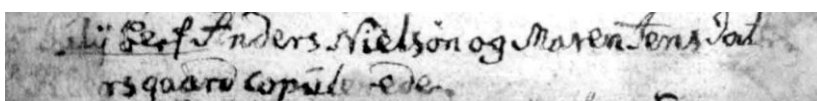 Anders Nielsön og Maren Jens Dat
rsgaard Copulerede